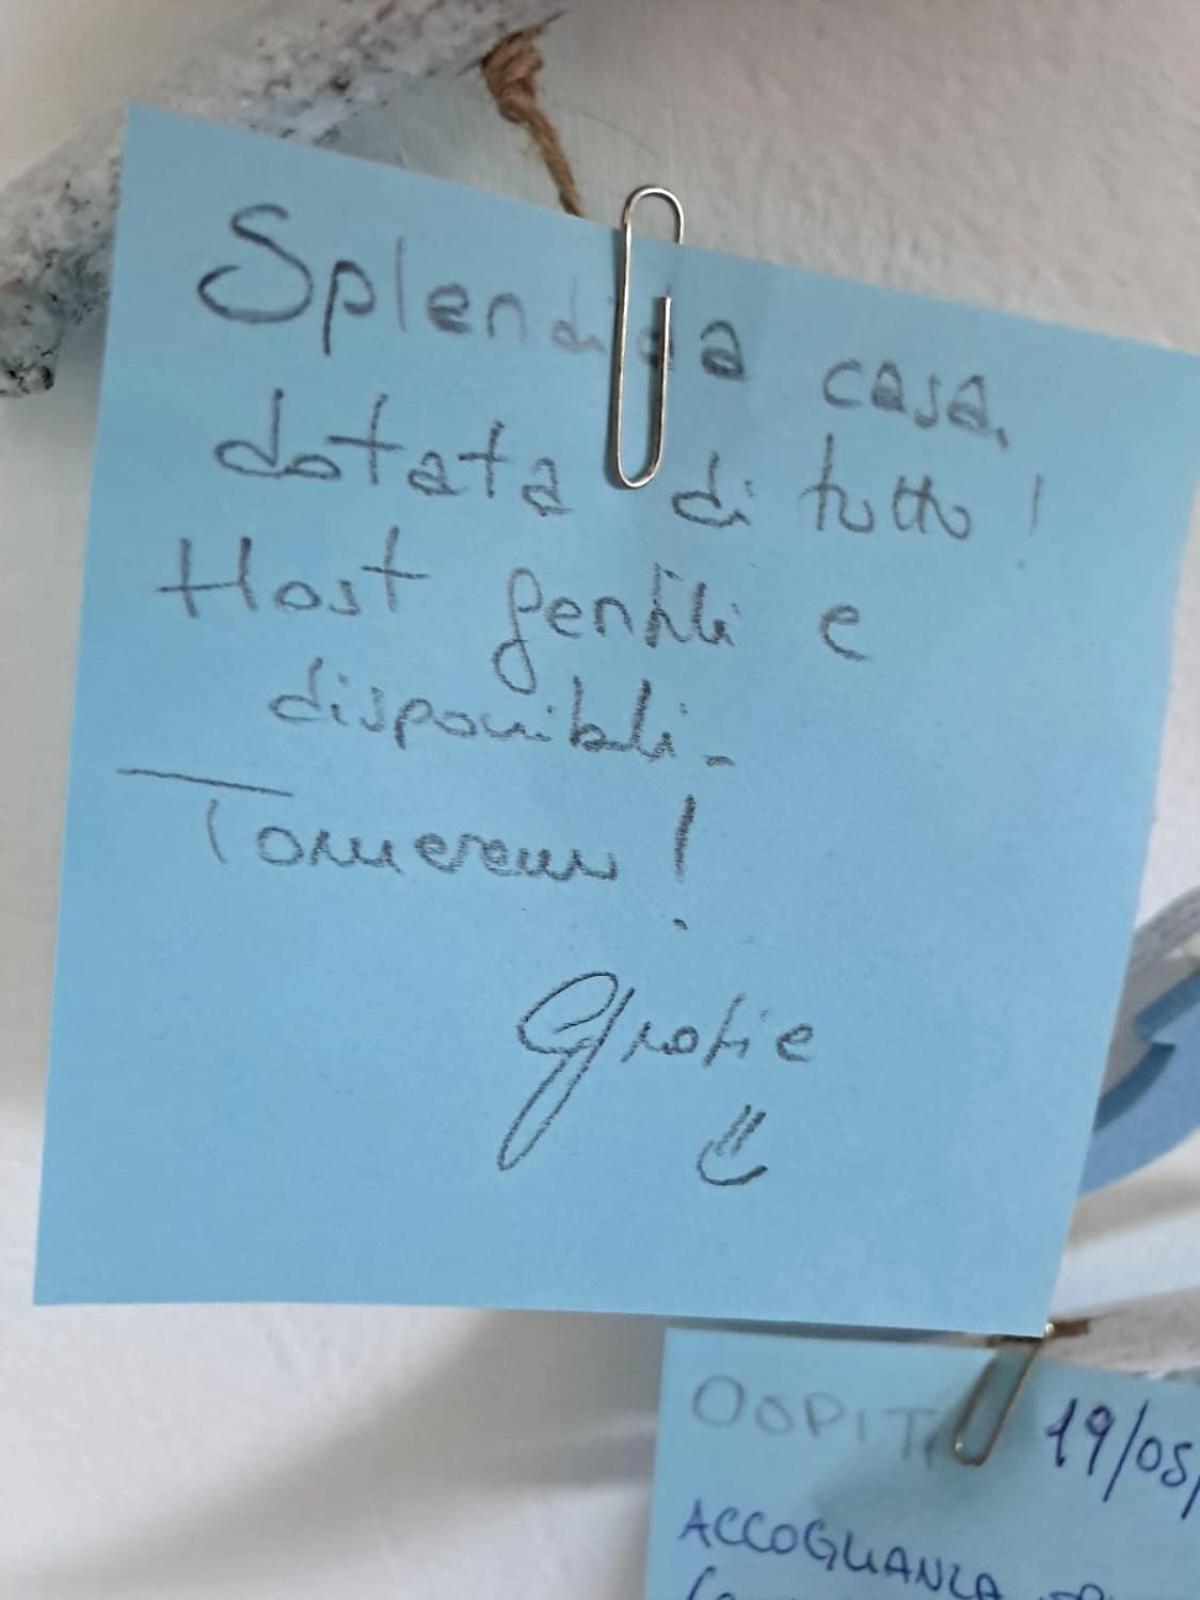 Splendida casa,
dotata di tutto!
Host gentili e
disponibili-
Torneremo!
Grazie
OSPITI 19/05/
ACCOGLIANZA